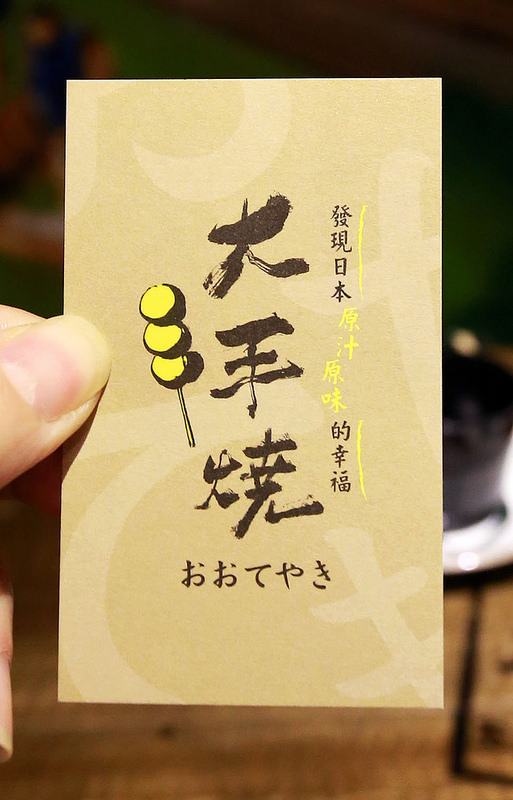 發現日本原汁原味的幸福
大手焼
おおてやき